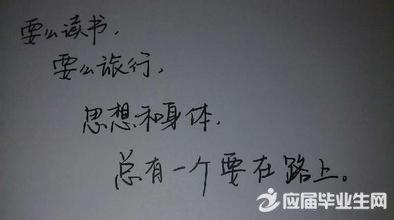 要么读书，
要么旅行，
思想和身体，
总有一个要在路上。
应届毕业生网